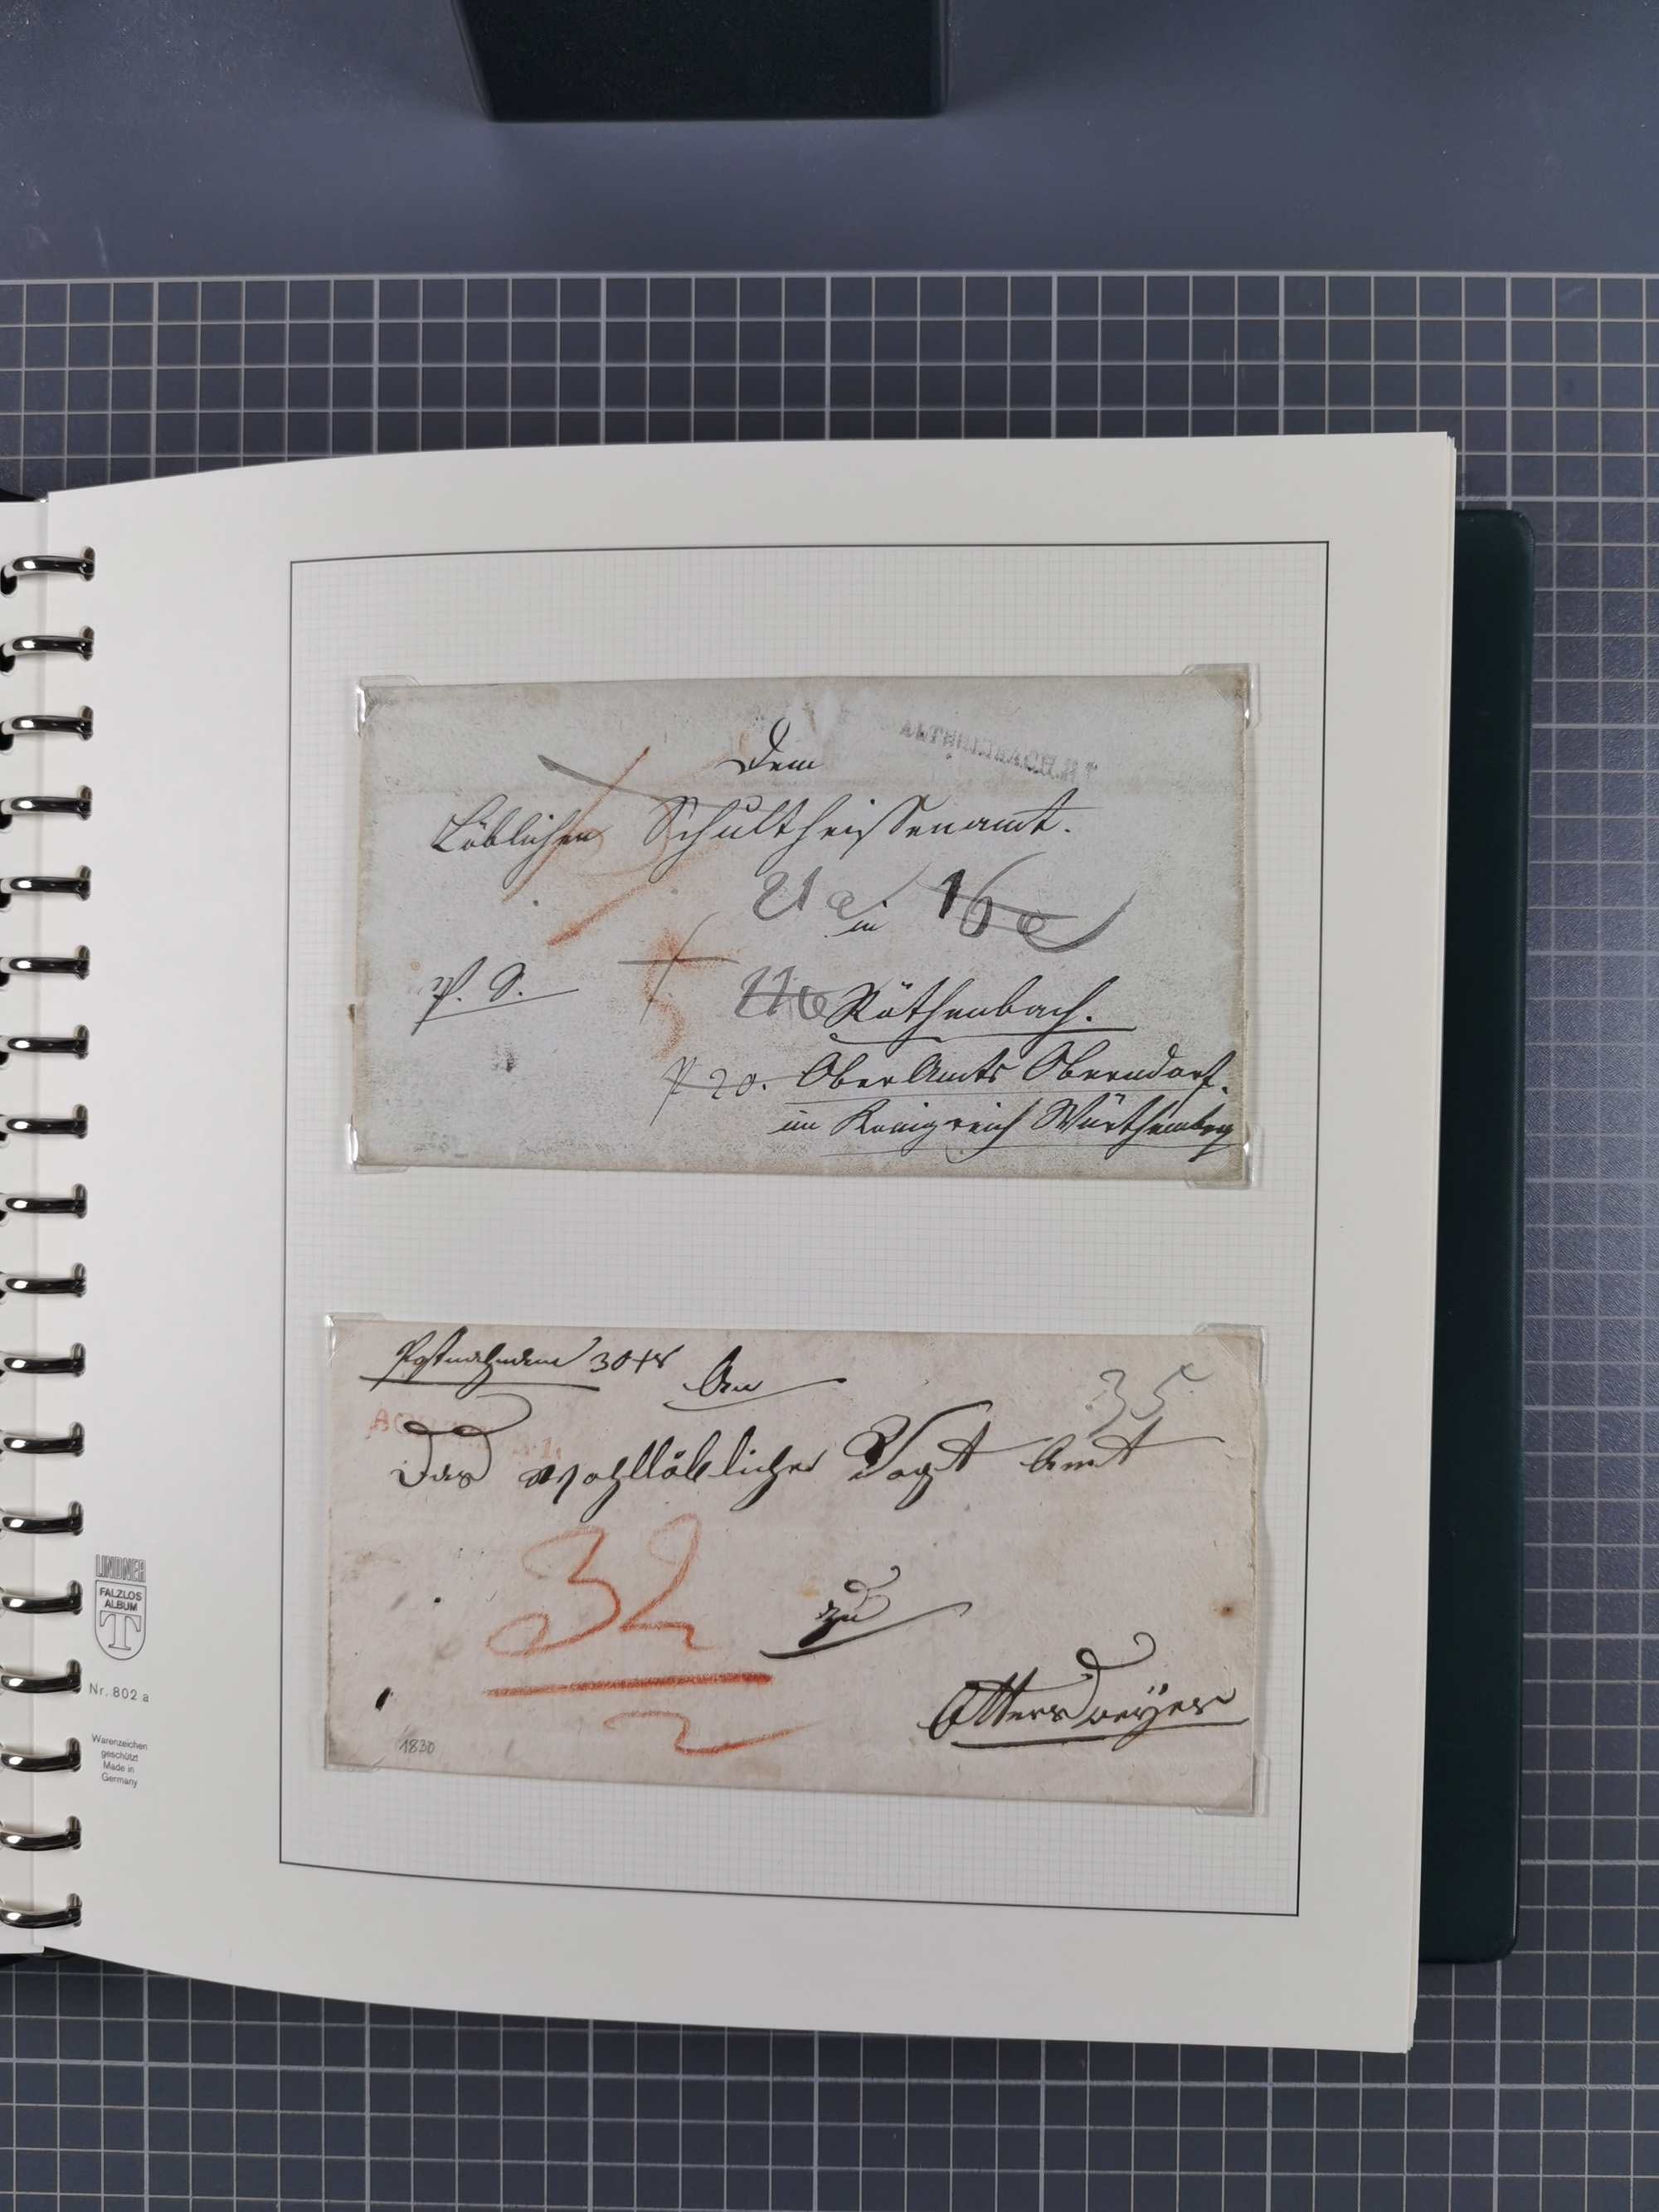 Dem
Löblichen Schultheissenamt.
21
in
16
P. S.
Röthenbach.
20. OberAmts Oberndorf.
im Königreich Würthemberg
Postnachnahme 30 xr
An
35
Das Wohllöbliche Vogt Amt
32
zu
Ottersweyer
1830
LINDNER
FALZLOS
ALBUM
T
Nr. 802 a
Warenzeichen
geschützt
Made in
Germany